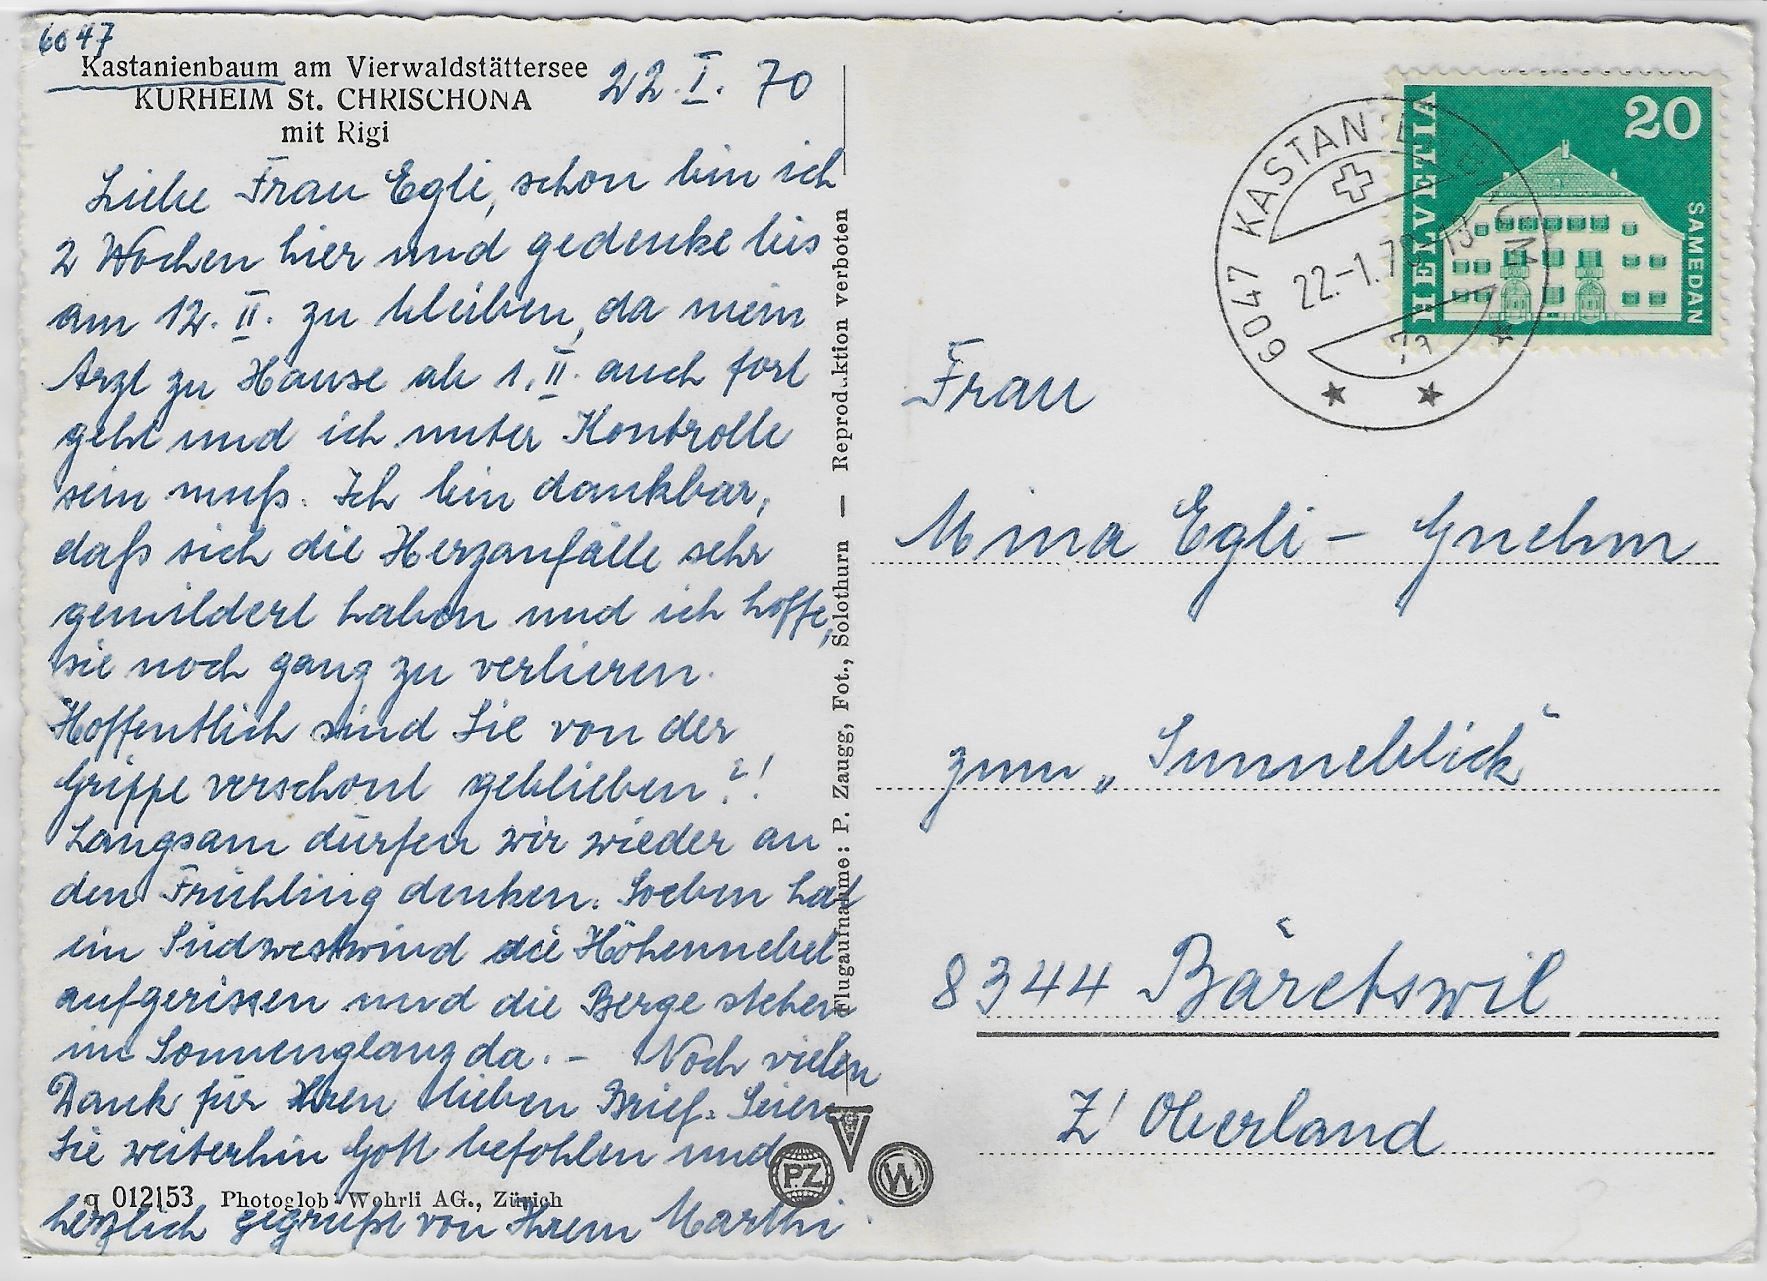 6047
Kastanienbaum am Vierwaldstättersee
KURHEIM St. CHRISCHONA
mit Rigi
22. I. 70
Liebe Frau Egli, schon bin ich
2 Wochen hier und gedenke bis
am 12. II. zu bleiben, da mein
Arzt zu Hause ab 1. II. auch fort
geht und ich unter Kontrolle
sein muß. Ich bin dankbar,
daß sich die Herzanfälle sehr
gemildert haben und ich hoffe,
sie noch ganz zu verlieren.
Hoffentlich sind Sie von der
Grippe verschont geblieben?!
Langsam dürfen wir wieder an
den Frühling denken. Soeben hat
ein Südwestwind die Höhennebel
aufgerissen und die Berge stehen
im Sonnenglanz da. – Noch vielen
Dank für Ihren lieben Brief. Seien
Sie weiterhin Gott befohlen und
herzlich gegrüßt von Ihrem Marthi
q 012153 Photoglob-Wehrli AG., Zürich
Flugaufnahme: P. Zaugg, Fot., Solothurn — Reproduktion verboten
PZ
W
6047 KASTANIENBAUM
22.-1.70-13
HELVETIA
20
SAMEDAN
Frau
Mina Egli – Gnehm
zum „Sunneblick"
8344 Bäretswil
Z' Oberland